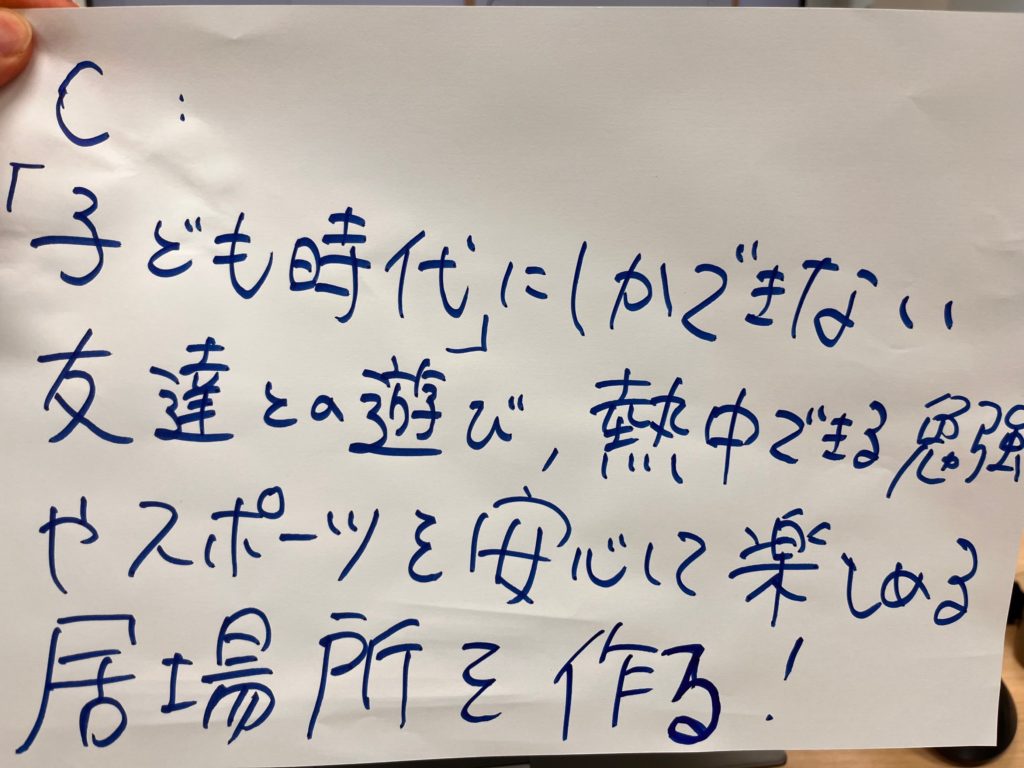 C:
「子ども時代」にしかできない
友達との遊び，熱中できる勉強
やスポーツを安心して楽しめる
居場所を作る!